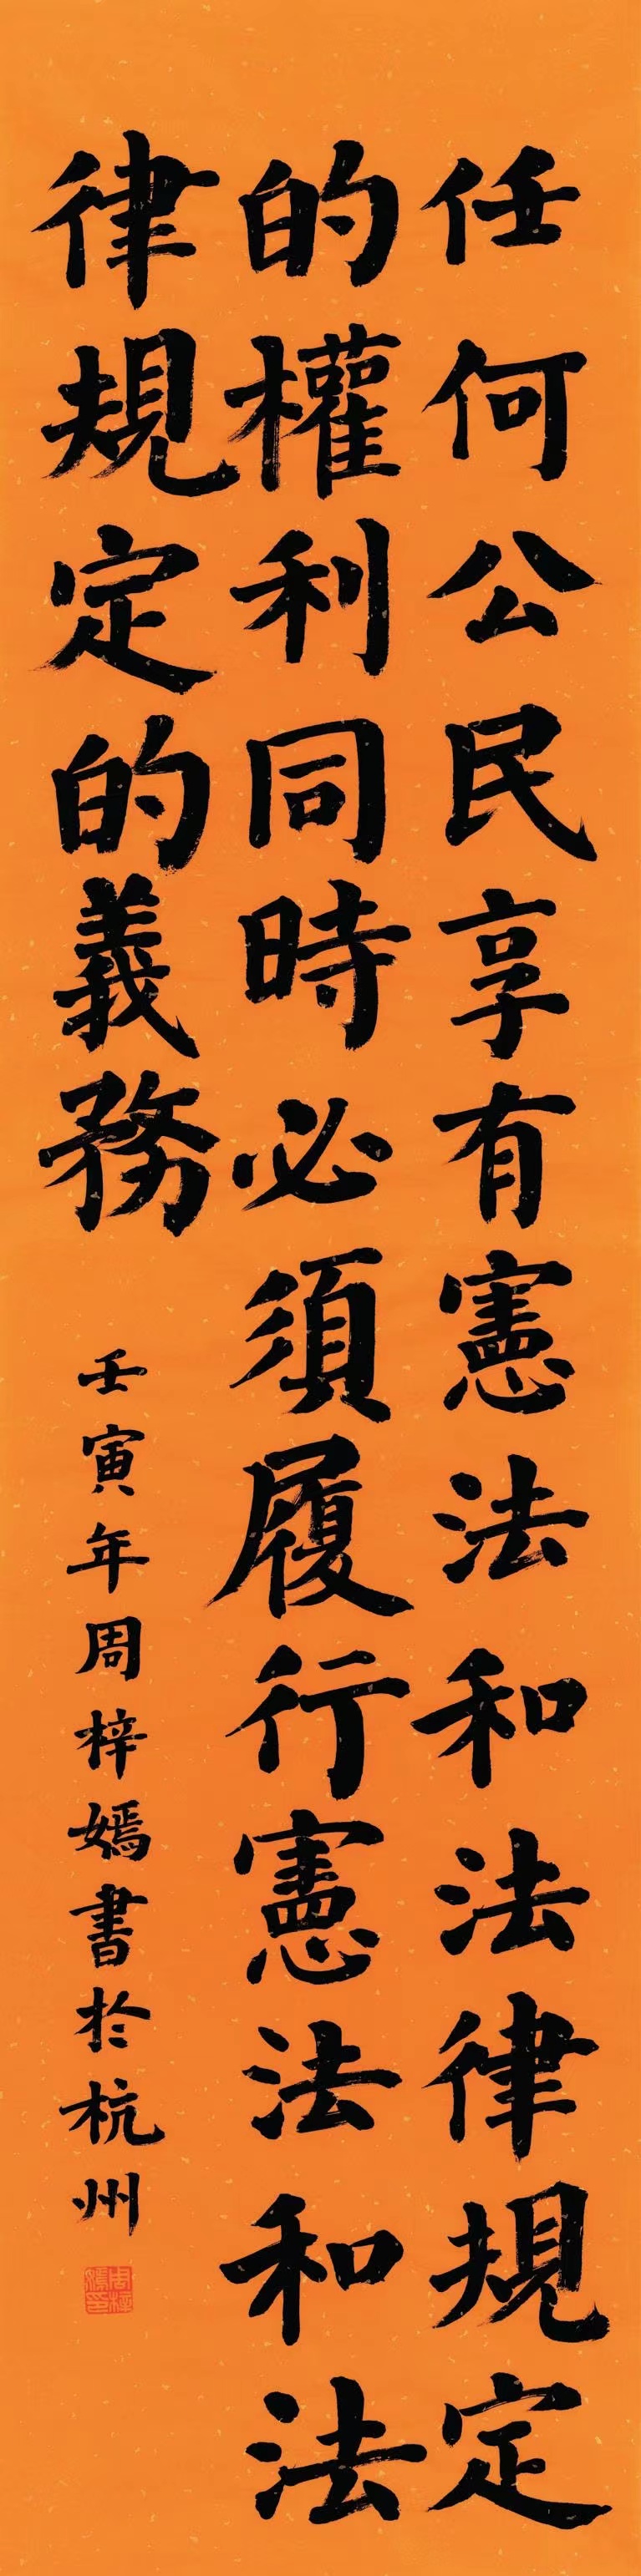 任何公民享有憲法和法律規定
的權利同時必須履行憲法和法
律規定的義務
壬寅年周梓嫣書於杭州
周梓嫣印